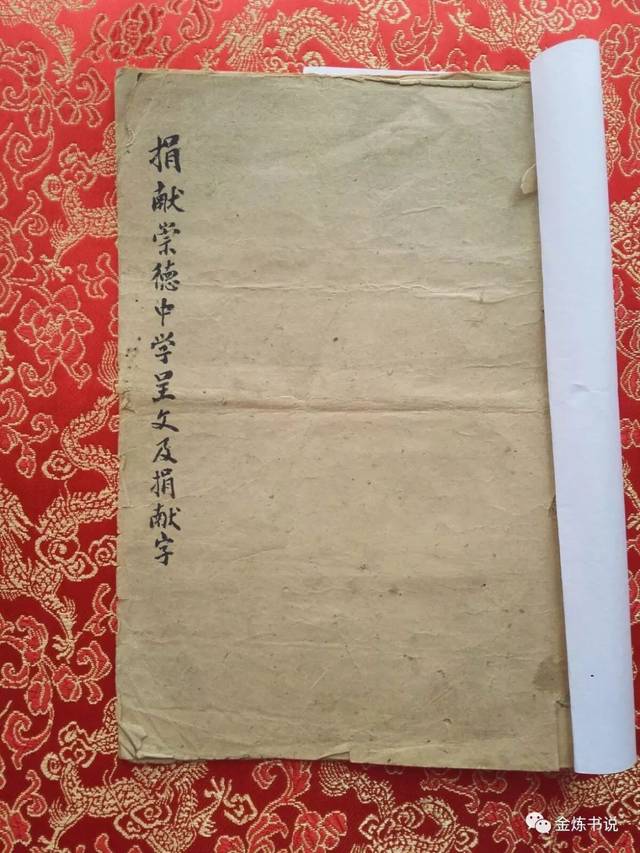 捐献崇德中学呈文及捐献字
金炼书说